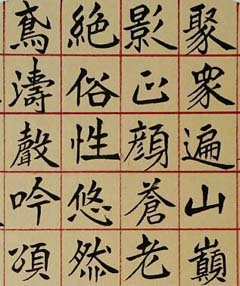 聚衆遍山巔
影正顔蒼老
絶俗性悠然
鳶濤聲吟頌